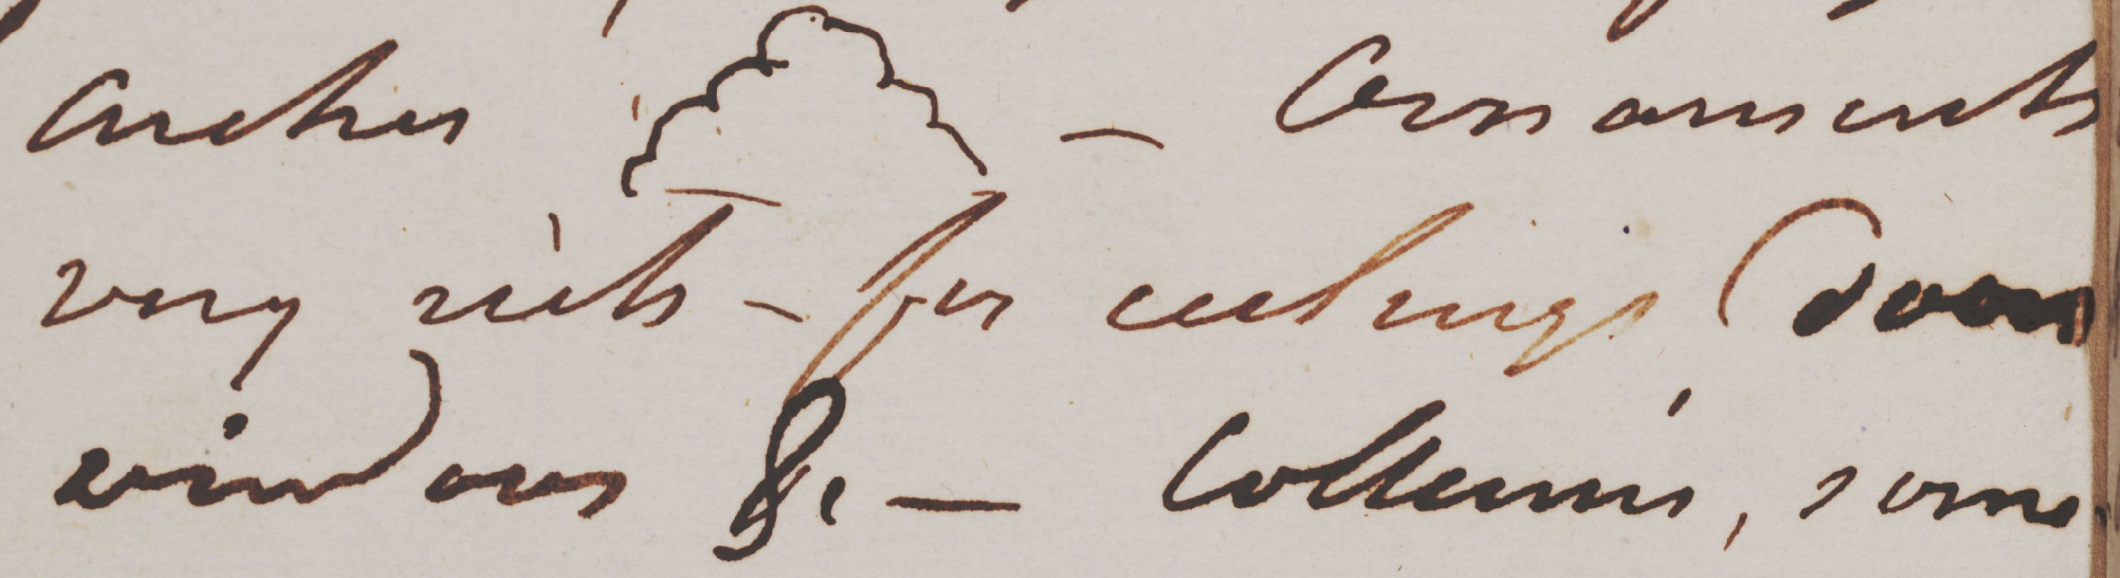 arches — Ornaments
very rich — for ceilings doors
windows &c — Collumns, some